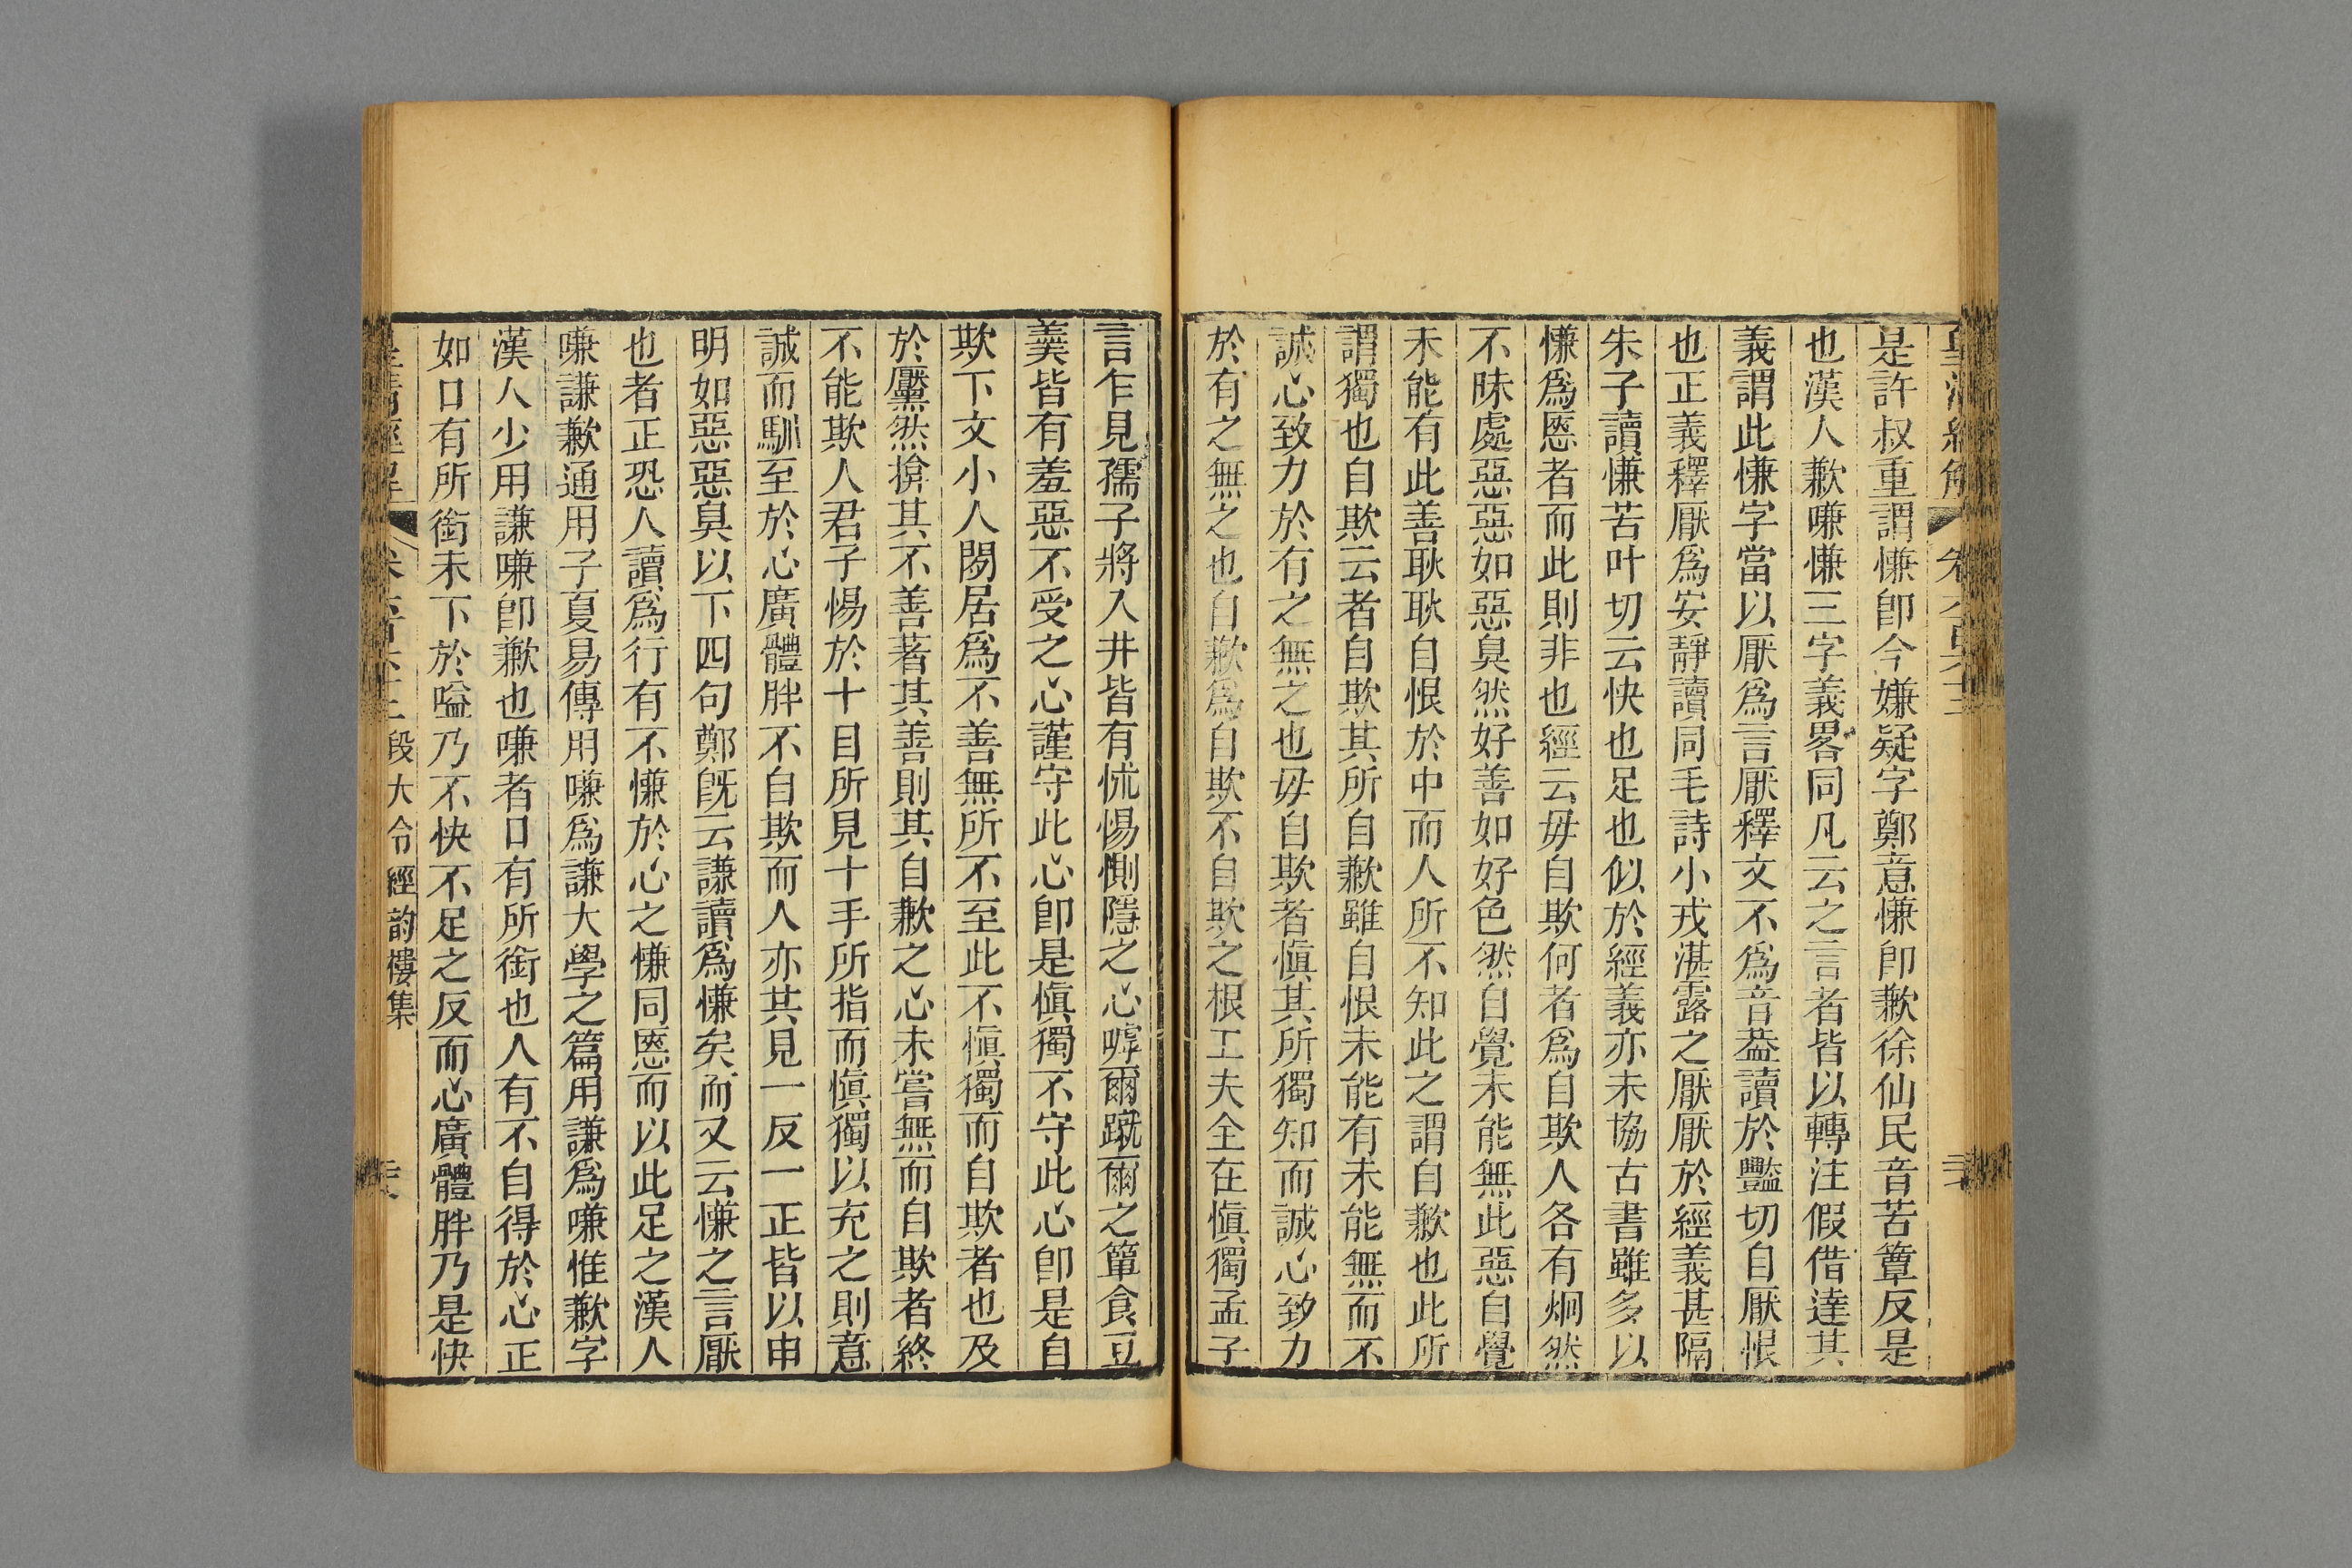 是許叔重謂慊卽今嫌疑字鄭意慊卽歉徐仙民音苦簟反是
也漢人歉嗛慊三字義畧同凡云之言者皆以轉注假借達其
義謂此慊字當以厭爲言厭釋文不爲音葢讀於豔切自厭恨
也正義釋厭爲安靜讀同毛詩小戎湛露之厭厭於經義甚隔
朱子讀慊苦叶切云快也足也似於經義亦未協古書雖多以
慊爲愜者而此則非也經云毋自欺何者爲自欺人各有炯然
不昧處惡惡如惡臭然好善如好色然自覺未能無此惡自覺
未能有此善耿耿自恨於中而人所不知此之謂自歉也此所
謂獨也自欺云者自欺其所自歉雖自恨未能有未能無而不
誠心致力於有之無之也毋自欺者愼其所獨知而誠心致力
於有之無之也自歉爲自欺不自欺之根工夫全在愼獨孟子
言乍見孺子將入井皆有怵惕惻隱之心嘑爾蹴爾之簞食豆
羹皆有羞惡不受之心謹守此心卽是愼獨不守此心卽是自
欺下文小人閒居爲不善無所不至此不愼獨而自欺者也及
於黶然揜其不善著其善則其自歉之心未嘗無而自欺者終
不能欺人君子惕於十目所見十手所指而愼獨以充之則意
誠而馴至於心廣體胖不自欺而人亦共見一反一正皆以申
明如惡惡臭以下四句鄭旣云謙讀爲慊矣而又云慊之言厭
也者正恐人讀爲行有不慊於心之慊同愜而以此足之漢人
嗛謙歉通用子夏易傳用嗛爲謙大學之篇用謙爲嗛惟歉字
漢人少用謙嗛卽歉也嗛者口有所銜也人有不自得於心正
如口有所銜未下於嗌乃不快不足之反而心廣體胖乃是快
段大令經韵樓集